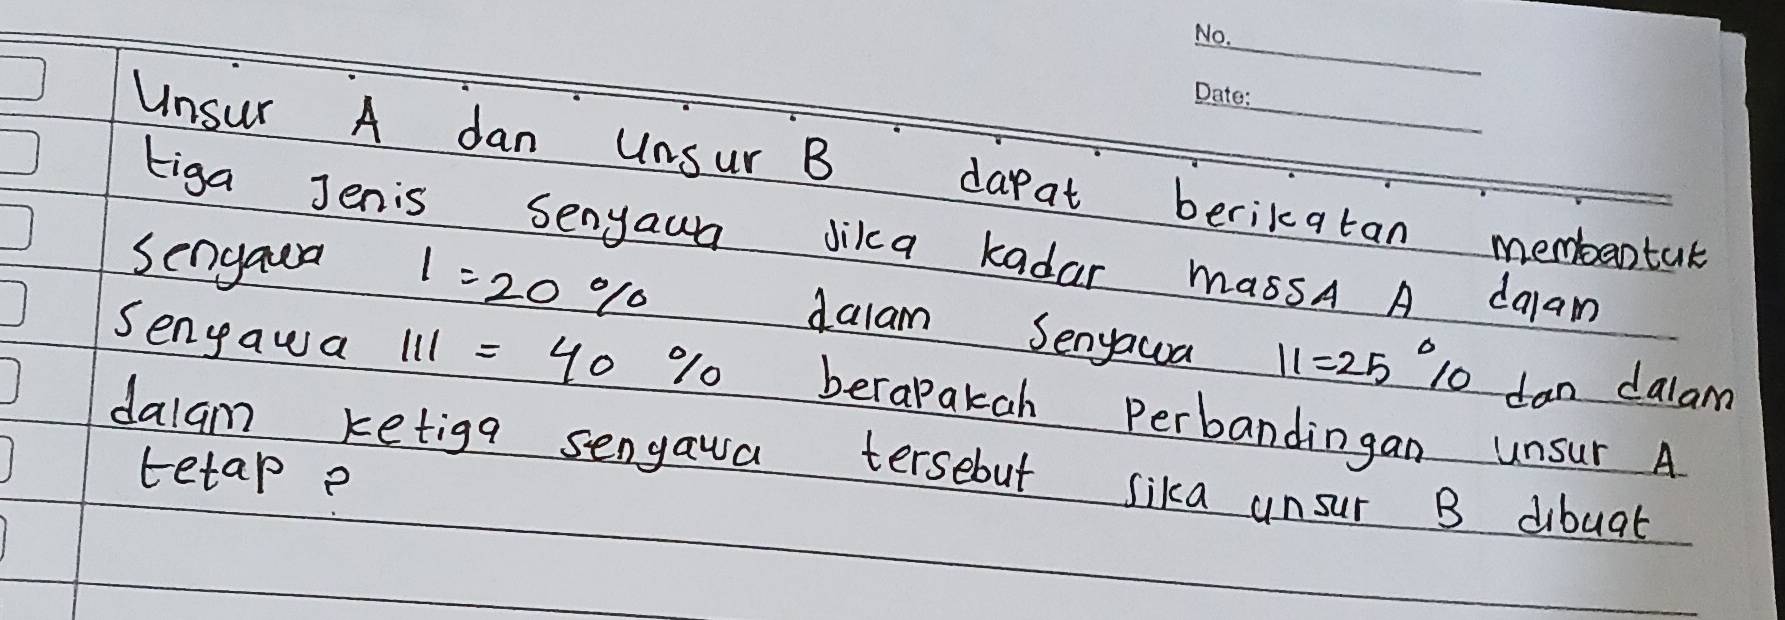 No.
Date:
Unsur A dan Unsur B dapat berikatan membentuk
tiga Jenis senyawa Jika kadar massA A dalam
senyawa I = 20 % dalam Senyawa II = 25 % dan dalam
Senyawa III = 40 % berapakah Perbandingan unsur A
dalam ketiga senyawa tersebut jika unsur B dibuat
tetap ?